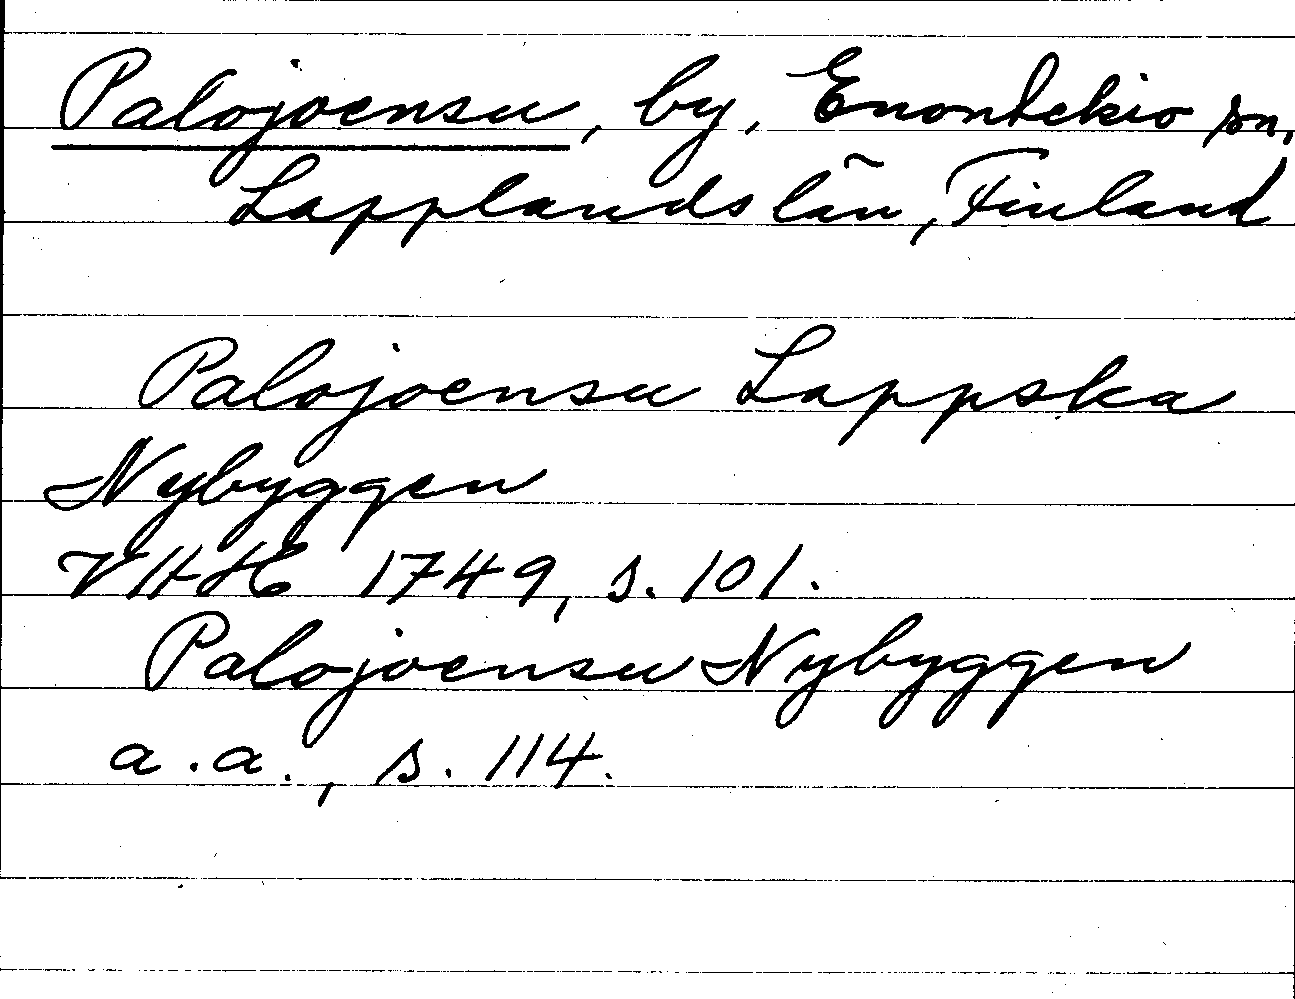 Palojoensu, by, Enontekio sn.
Lapplands län, Finland
Palojoensu Lappska
Nybyggen
VHH 1749, s. 101.
Palojoensu Nybyggen
a.a., s. 114.